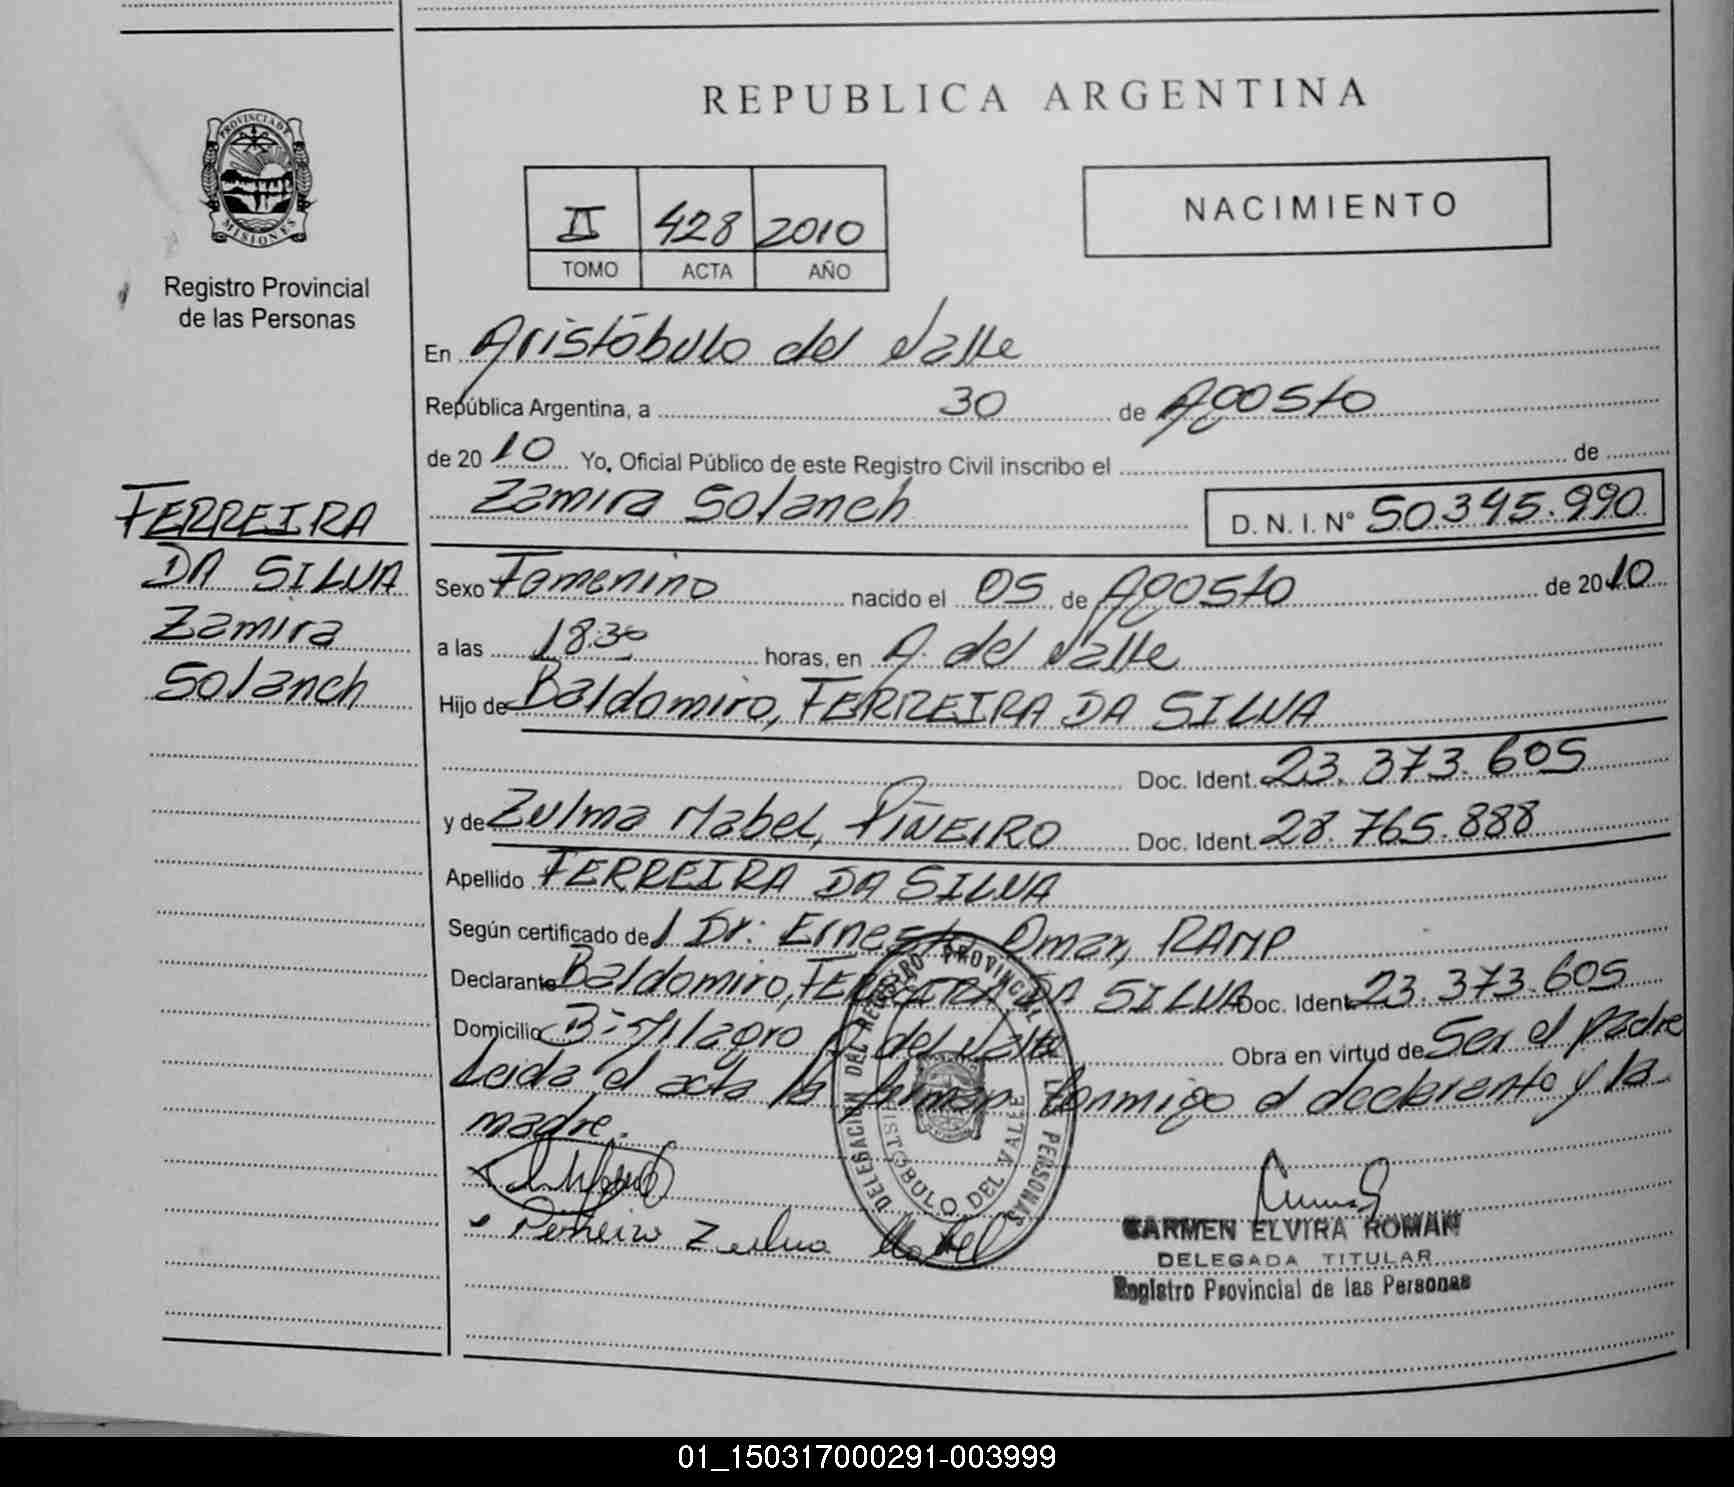 REPUBLICA ARGENTINA
PROVINCIA DE
MISIONES
Registro Provincial
de las Personas
II 428 2010
TOMO ACTA AÑO
NACIMIENTO
En Aristóbulo del Valle
República Argentina, a 30 de Agosto
de 2010 Yo, Oficial Público de este Registro Civil inscribo el de
Zamira Solanch D. N. I. Nº 50.345.990
FERREIRA
DA SILVA
Zamira
Solanch
Sexo Femenino nacido el 05 de Agosto de 2010
a las 18:30 horas, en A. del Valle
Hijo de Baldomiro, FERREIRA DA SILVA
Doc. Ident. 23.373.605
y de Zulma Mabel, PIÑEIRO Doc. Ident. 28.765.888
Apellido FERREIRA DA SILVA
Según certificado del Dr: Ernesto Omar, RAMP
Declarante Baldomiro, FERREIRA DA SILVA Doc. Ident. 23.373.605
Domicilio B= Milagro A. del Valle Obra en virtud de Ser el padre
Leida el acta la firman conmigo el declarante y la
madre.
DELEGACION DEL REGISTRO PROVINCIAL DE LAS PERSONAS
ARISTOBULO DEL VALLE
Piñeiro Zulma Mabel
CARMEN ELVIRA ROMAN
DELEGADA TITULAR
Registro Provincial de las Personas
01_150317000291-003999